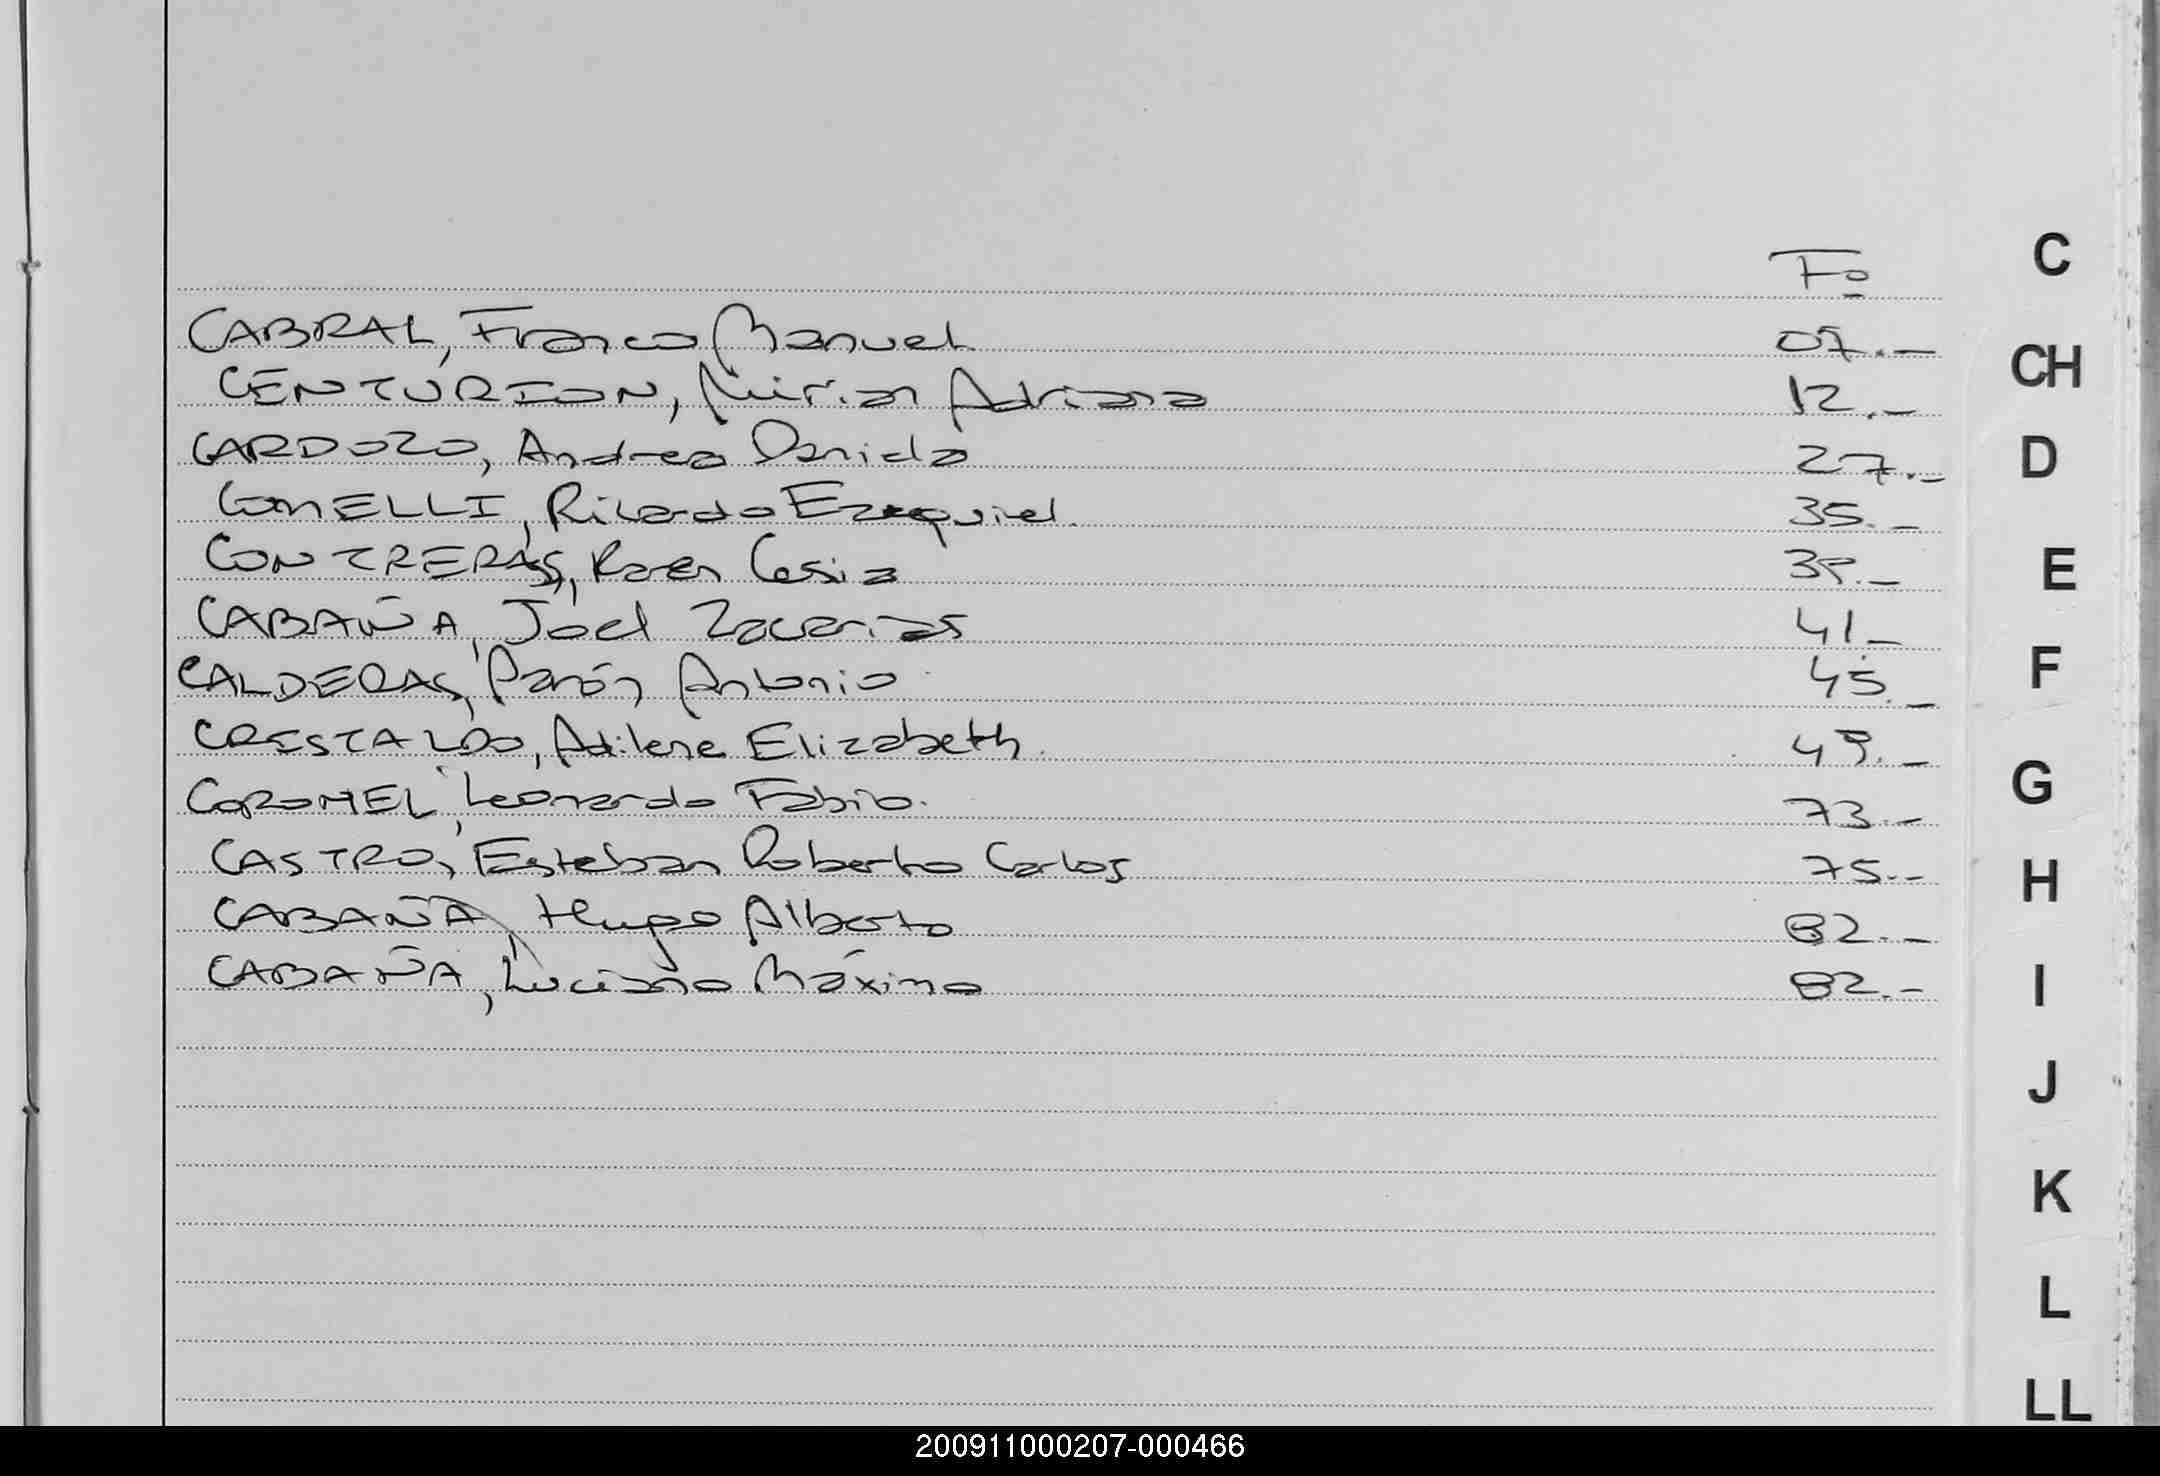 Fo
CABRAL, Franco Manuel 07.-
CENTURION, Mirian Adriana 12.-
CARDOZO, Andrea Daniela 27.-
ComELLI, Ricardo Ezequiel. 35.-
CONTRERAS, Karen Cesia 39.-
CABAÑA, Joel Zacarias 41.-
CALDERAS, Ramón Antonio 45.-
CRISTALDO, Adilene Elizabeth. 49.-
CORONEL, Leonardo Fabio. 73.-
CASTRO, Esteban Roberto Carlos 75.-
CABAÑA, Hugo Alberto 82.-
CABAÑA, Luciano Máximo 82.-
C
CH
D
E
F
G
H
I
J
K
L
LL
200911000207-000466